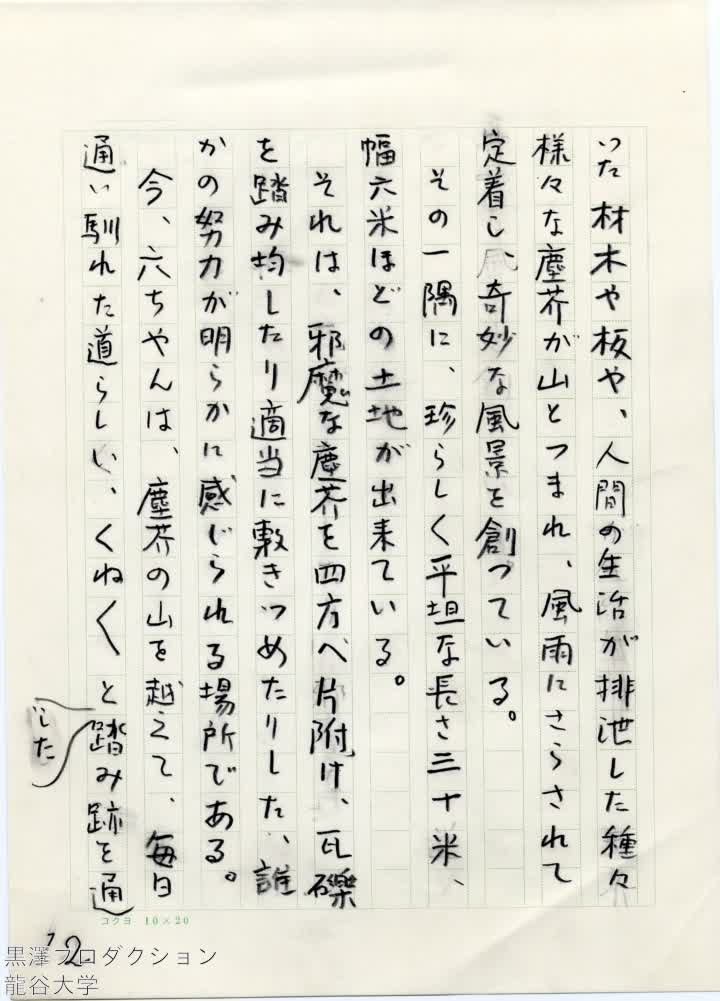 いた材木や板や、人間の生活が排泄した種々
様々な塵芥が山とつまれ、風雨にさらされて
定着し、奇妙な風景を創つている。
その一隅に、珍らしく平坦な長さ三十米、
幅六米ほどの土地が出来ている。
それは、邪魔な塵芥を四方へ片附け、瓦礫
を踏み均したり適当に敷きつめたりした、誰
かの努力が明らかに感じられる場所である。
今、六ちやんは、塵芥の山を越えて、毎日
通い馴れた道らしい、くねくと
した
踏み跡を通
コクヨ 10×20
12
黒澤プロダクション
龍谷大学